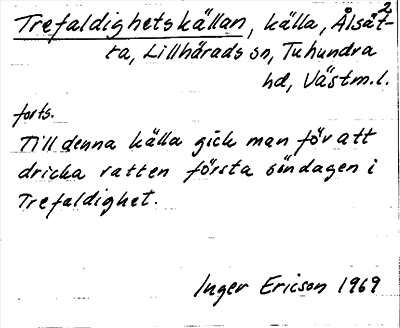 2
Trefaldighetskällan, källa, Ålsät-
ta, Lillhärads sn, Tuhundra
hd, Västm.l.
forts.
Till denna källa gick man för att
dricka vatten första söndagen i
Trefaldighet.
Inger Ericson 1969